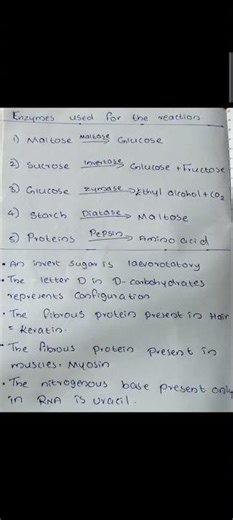 Enzymes used for the reaction
1) Maltose Maltase→ Glucose
2) Sucrose Invertase→ Glucose + Fructose
3) Glucose Zymase→ Ethyl alcohol + CO2
4) Starch Diatase→ Maltose
5) Proteins Pepsin→ Amino acid
• An invert sugar is laevorotatory
• The letter D in D-carbohydrates
represents configuration
• The fibrous protein present in Hair
= Keratin.
• The fibrous protein present in
muscles = Myosin
• The nitrogenous base present only
in RNA is uracil.